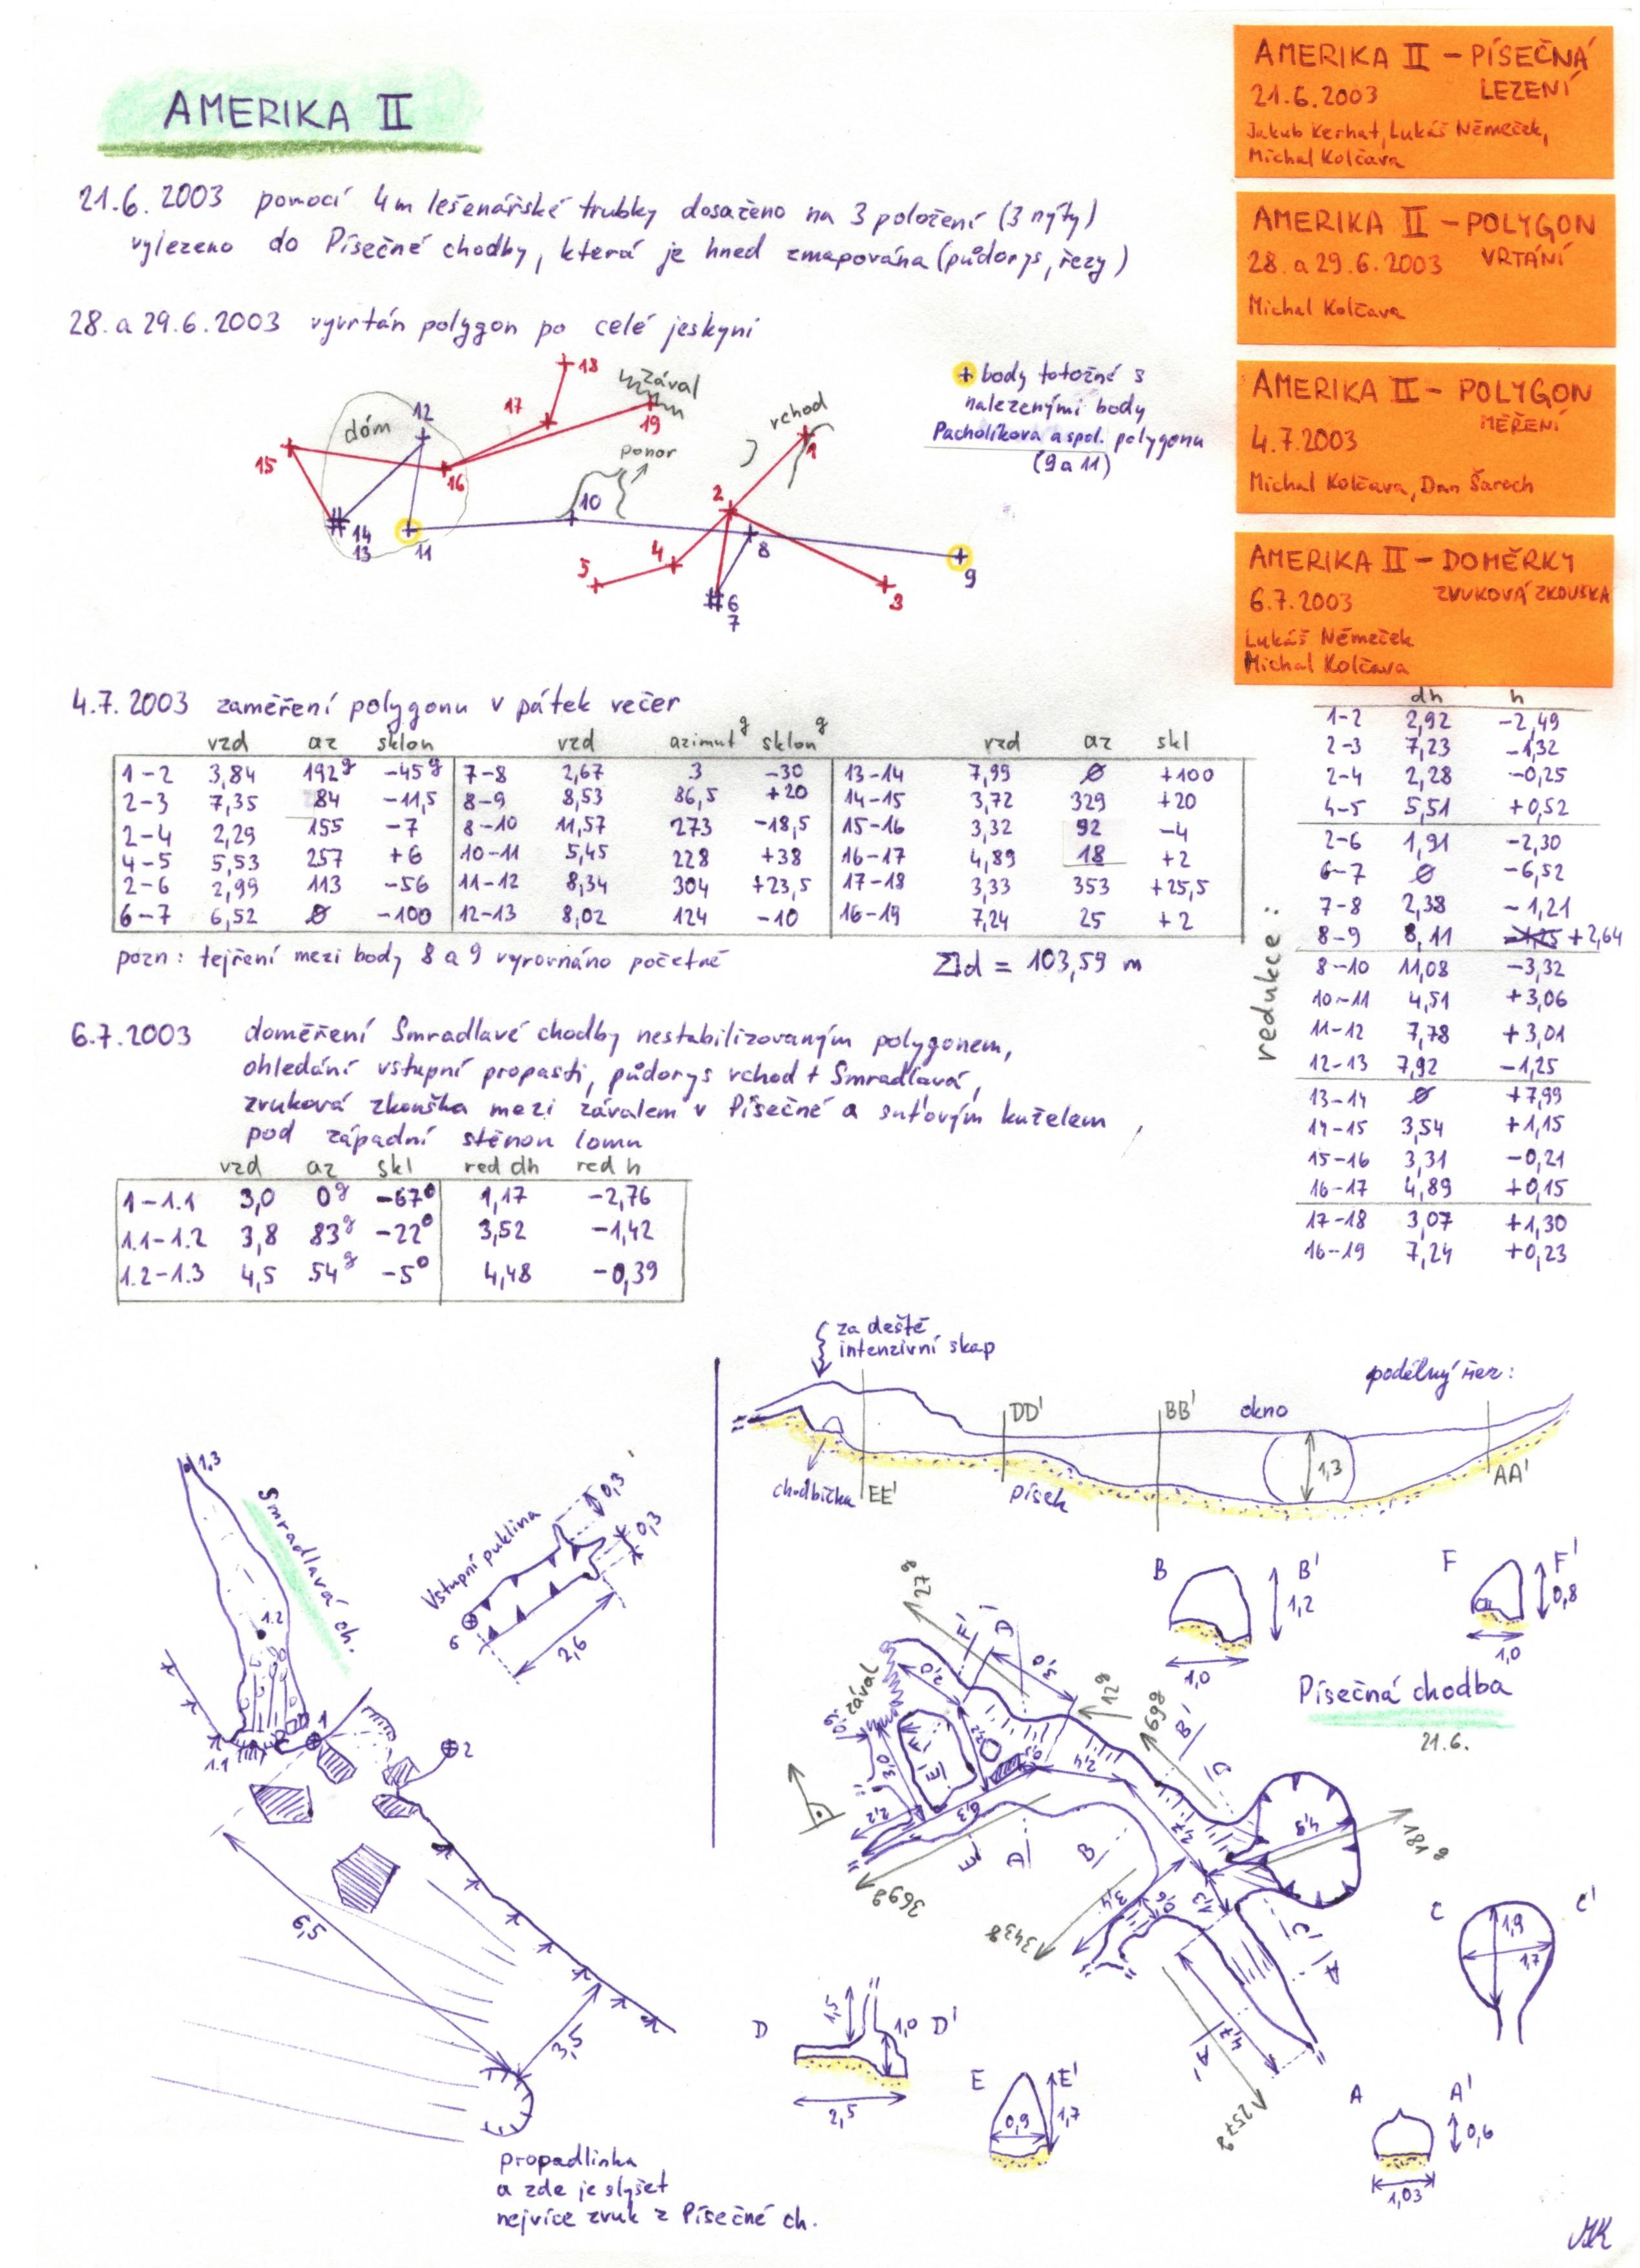 AMERIKA II
AMERIKA II - PÍSEČNÁ
21.6.2003 LEZENÍ
Jakub Kerhat, Lukáš Němeček,
Michal Kolčava
AMERIKA II - POLYGON
28. a 29.6.2003 VRTÁNÍ
Michal Kolčava
AMERIKA II - POLYGON
MĚŘENÍ
4.7.2003
Michal Kolčava, Dan Šaroch
AMERIKA II - DOMĚRKY
6.7.2003 ZVUKOVÁ ZKOUŠKA
Lukáš Němeček
Michal Kolčava
21.6. 2003 pomocí 4m lešenářské trubky dosaženo na 3 položení (3 nýty)
vylezeno do Písečné chodby, která je hned zmapována (půdorys, řezy)
28. a 29.6.2003 vyvrtán polygon po celé jeskyni
18
zával
17
19
12
dóm
15
16
ponor
vchod
1
2
10
14
13
11
8
4
5
6
7
3
9
+ body totožné s
nalezenými body
Pacholíkova a spol. polygonu
(9 a 11)
4.7.2003 zaměření polygonu v pátek večer
vzd az sklon vzd azimut g sklon g vzd az skl
1-2 3,84 192g -45g 7-8 2,67 3 -30 13-14 7,99 ø +100
2-3 7,35 84 -11,5 8-9 8,53 86,5 +20 14-15 3,72 329 +20
2-4 2,29 155 -7 8-10 11,57 273 -18,5 15-16 3,32 92 -4
4-5 5,53 257 +6 10-11 5,45 228 +38 16-17 4,89 18 +2
2-6 2,99 113 -56 11-12 8,34 304 +23,5 17-18 3,33 353 +25,5
6-7 6,52 ø -100 12-13 8,02 124 -10 16-19 7,24 25 +2
pozn: tejření mezi body 8 a 9 vyrovnáno početně Σd = 103,59 m
redukce:
dh h
1-2 2,92 -2,49
2-3 7,23 -1,32
2-4 2,28 -0,25
4-5 5,51 +0,52
2-6 1,91 -2,30
6-7 ø -6,52
7-8 2,38 -1,21
8-9 8,11 +2,64
8-10 11,08 -3,32
10-11 4,51 +3,06
11-12 7,78 +3,01
12-13 7,92 -1,25
13-14 ø +7,99
14-15 3,54 +1,15
15-16 3,31 -0,21
16-17 4,89 +0,15
17-18 3,07 +1,30
16-19 7,24 +0,23
6.7.2003 doměření Smradlavé chodby nestabilizovaným polygonem,
ohledání vstupní propasti, půdorys vchod + Smradlavá,
zvuková zkouška mezi závalem v Písečné a suťovým kuželem
pod západní stěnou lomu
vzd az skl red dh red h
1-1.1 3,0 0g -67° 1,17 -2,76
1.1-1.2 3,8 83g -22° 3,52 -1,42
1.2-1.3 4,5 54g -5° 4,48 -0,39
za deště
intenzivní skap
podélný řez:
DD' BB' okno
1,3
AA'
chodbička EE' písek
1.3
Smradlavá ch.
1.2
1.1
1
2
Vstupní puklina
0,3
0,3
6
2,6
6,5
3,5
propadlinka
a zde je slyšet
nejvíce zvuk z Písečné ch.
B B'
1,2
1,0
F F'
0,8
1,0
Písečná chodba
21.6.
27g
F'
D'
3,0
2,0
12g
169g
B'
D
zával
3,0
F
E'
2,4
2,2
6,3
E
A
B
4,7
4,9
181g
369g
343g
3,4
0,6
1,3
C'
A
4,7
A'
257g
C C'
1,9
1,7
D 1,5 1,0 D'
2,5
E E'
0,9 1,7
A A'
0,6
1,03
MK